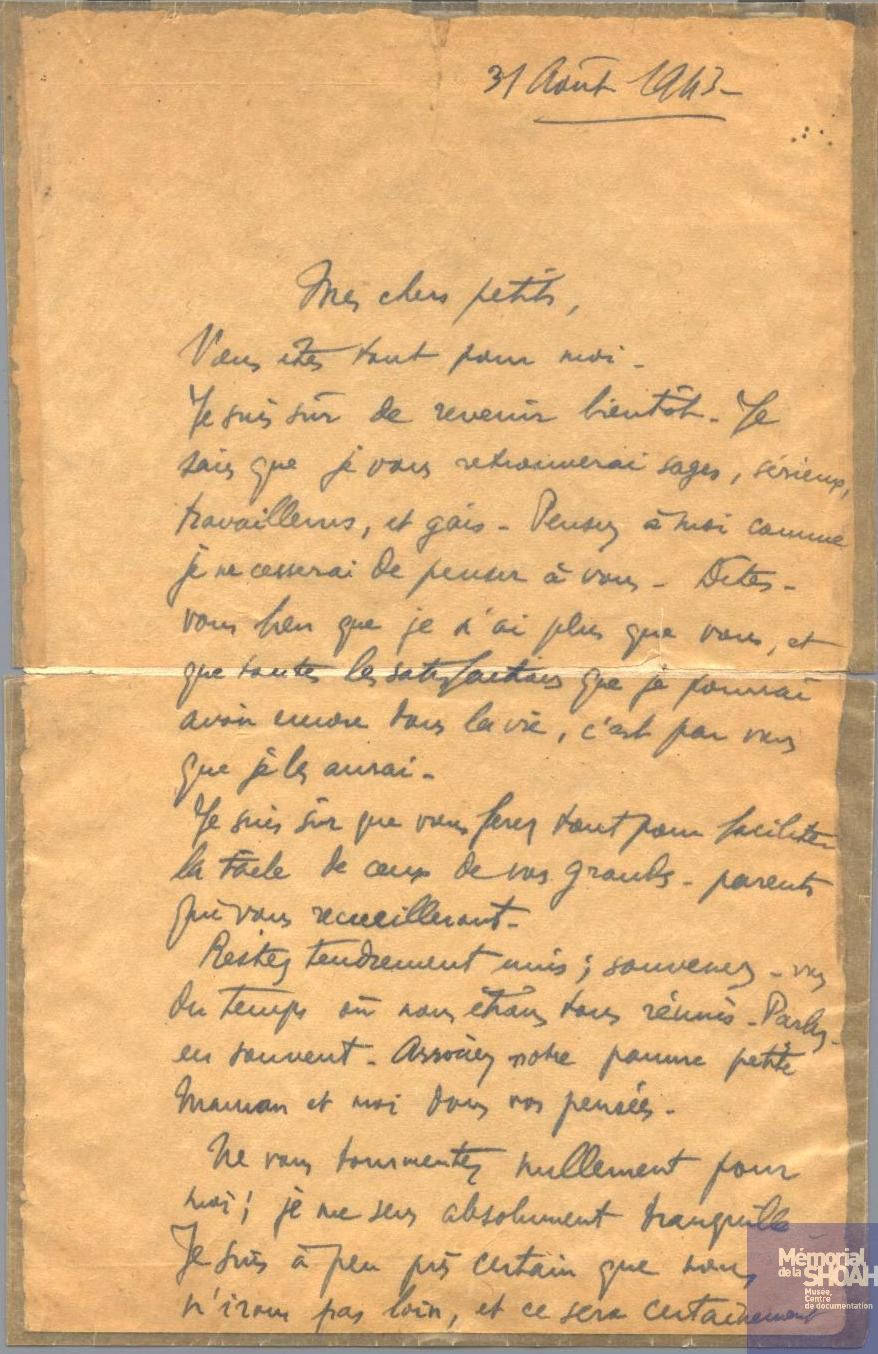 31 Août 1943-
Mes chers petits,
Vous êtes tout pour moi -
Je suis sûr de revenir bientôt - Je
sais que je vous retrouverai sages, sérieux,
travailleurs, et gais - Pensez à moi comme
je ne cesserai de penser à vous - Dites-
vous bien que je n'ai plus que vous, et
que toutes les satisfactions que je pourrai
avoir encore dans la vie, c'est par vous
que je les aurai -
Je suis sûr que vous ferez tout pour faciliter
la tâche de ceux de vos grands-parents
qui vous recueilleront -
Restez tendrement unis ; souvenez-vous
du temps où nous étions tous réunis - Parlez-
en souvent - Associez notre pauvre petite
Maman et moi dans vos pensées -
Ne vous tourmentez nullement pour
moi ; je me sens absolument tranquille
Je suis à peu près certain que nous
n'irons pas loin, et ce sera certainement
Mémorial
de la SHOAH
Musée,
Centre
de documentation